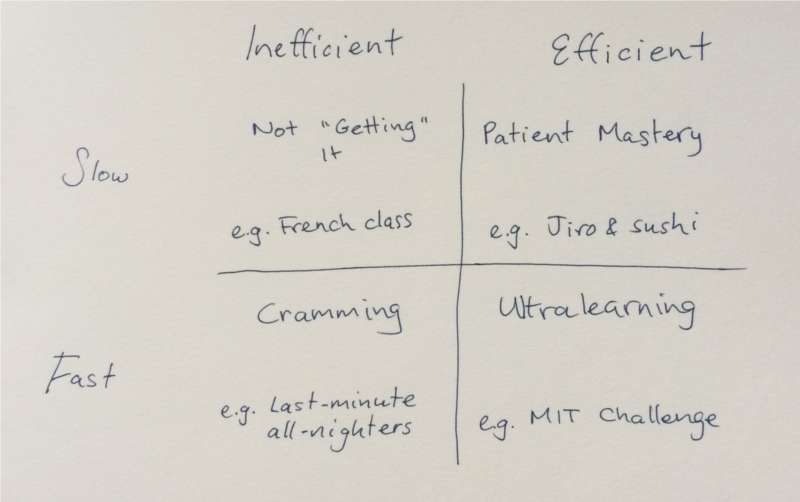 Inefficient
Efficient
Slow
Not "Getting"
It
e.g. French class
Patient Mastery
e.g. Jiro & sushi
Fast
Cramming
e.g. Last-minute
all-nighters
Ultralearning
e.g. MIT Challenge